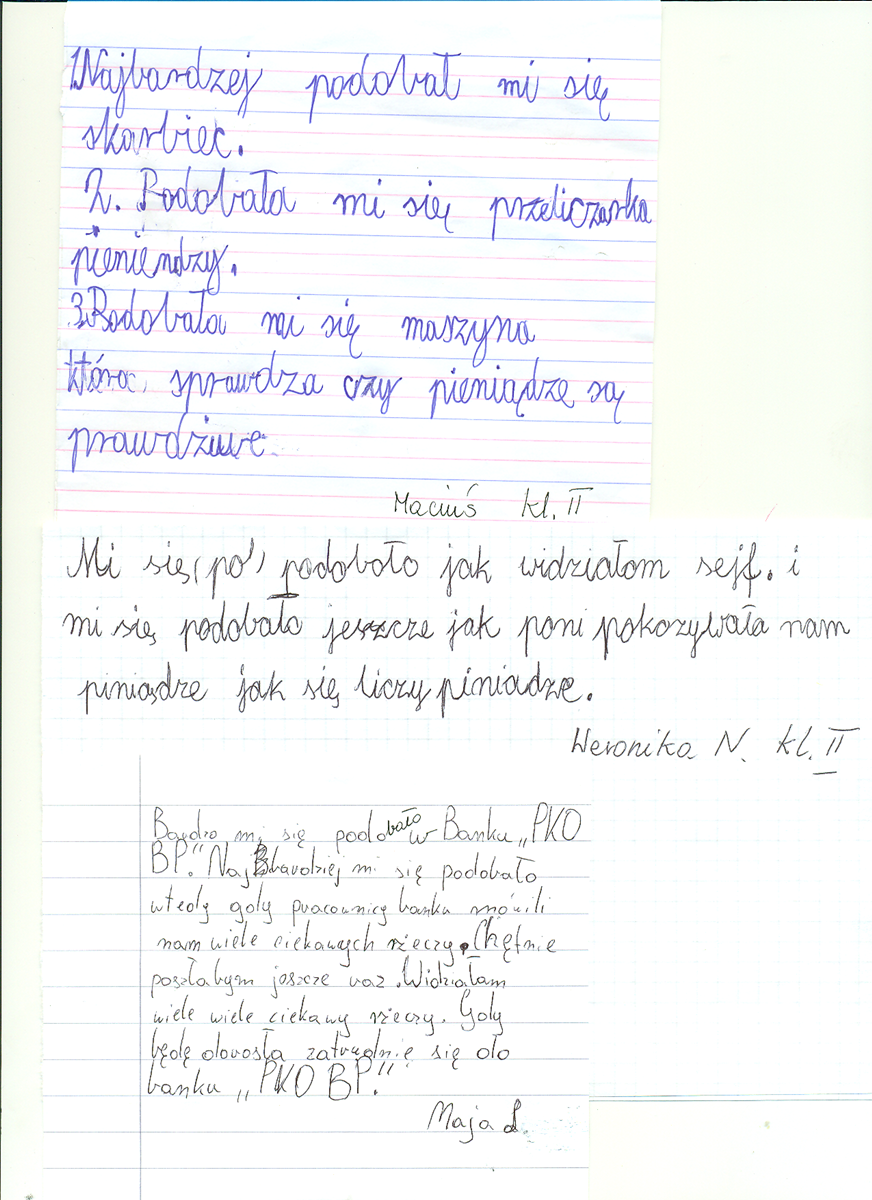 1.Najbardzej podobał mi się
skarbiec.
2. Podobała mi się przeliczarka
pieniendzy.
3.Podobała mi się maszyna
która sprawdza czy pieniądze są
prawdziwe
Maciuś kl. II
Mi się (po') podobało jak widziałom sejf. i
mi się podobało jeszcze jak poni pokozywała nam
piniądze jak się liczy piniadze.
Weronika N. kl. II
Bardzo mi się podobało w Banku „PKO
BP." Najbardziej mi się podobało
wtedy gdy pracownicy banku mówili
nam wiele ciekawych rzeczy. Chętnie
poszłabym jeszcze raz. Widziałam
wiele wiele ciekawy rzeczy. Gdy
będę dorosła zatrudnię się do
banku „PKO BP."
Maja L.